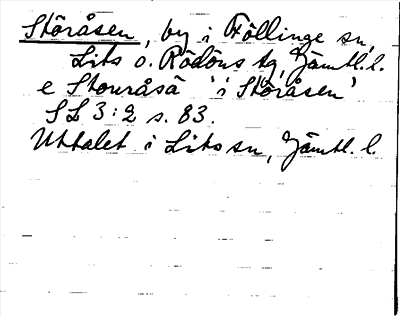 Storåsen, by i Föllinge sn,
Lits o. Rödöns tg, Jämtl. l.
e Stouråså 'i Storåsen'
SL 3:2 s. 83.
Uttalet i Lits sn, Jämtl. l.